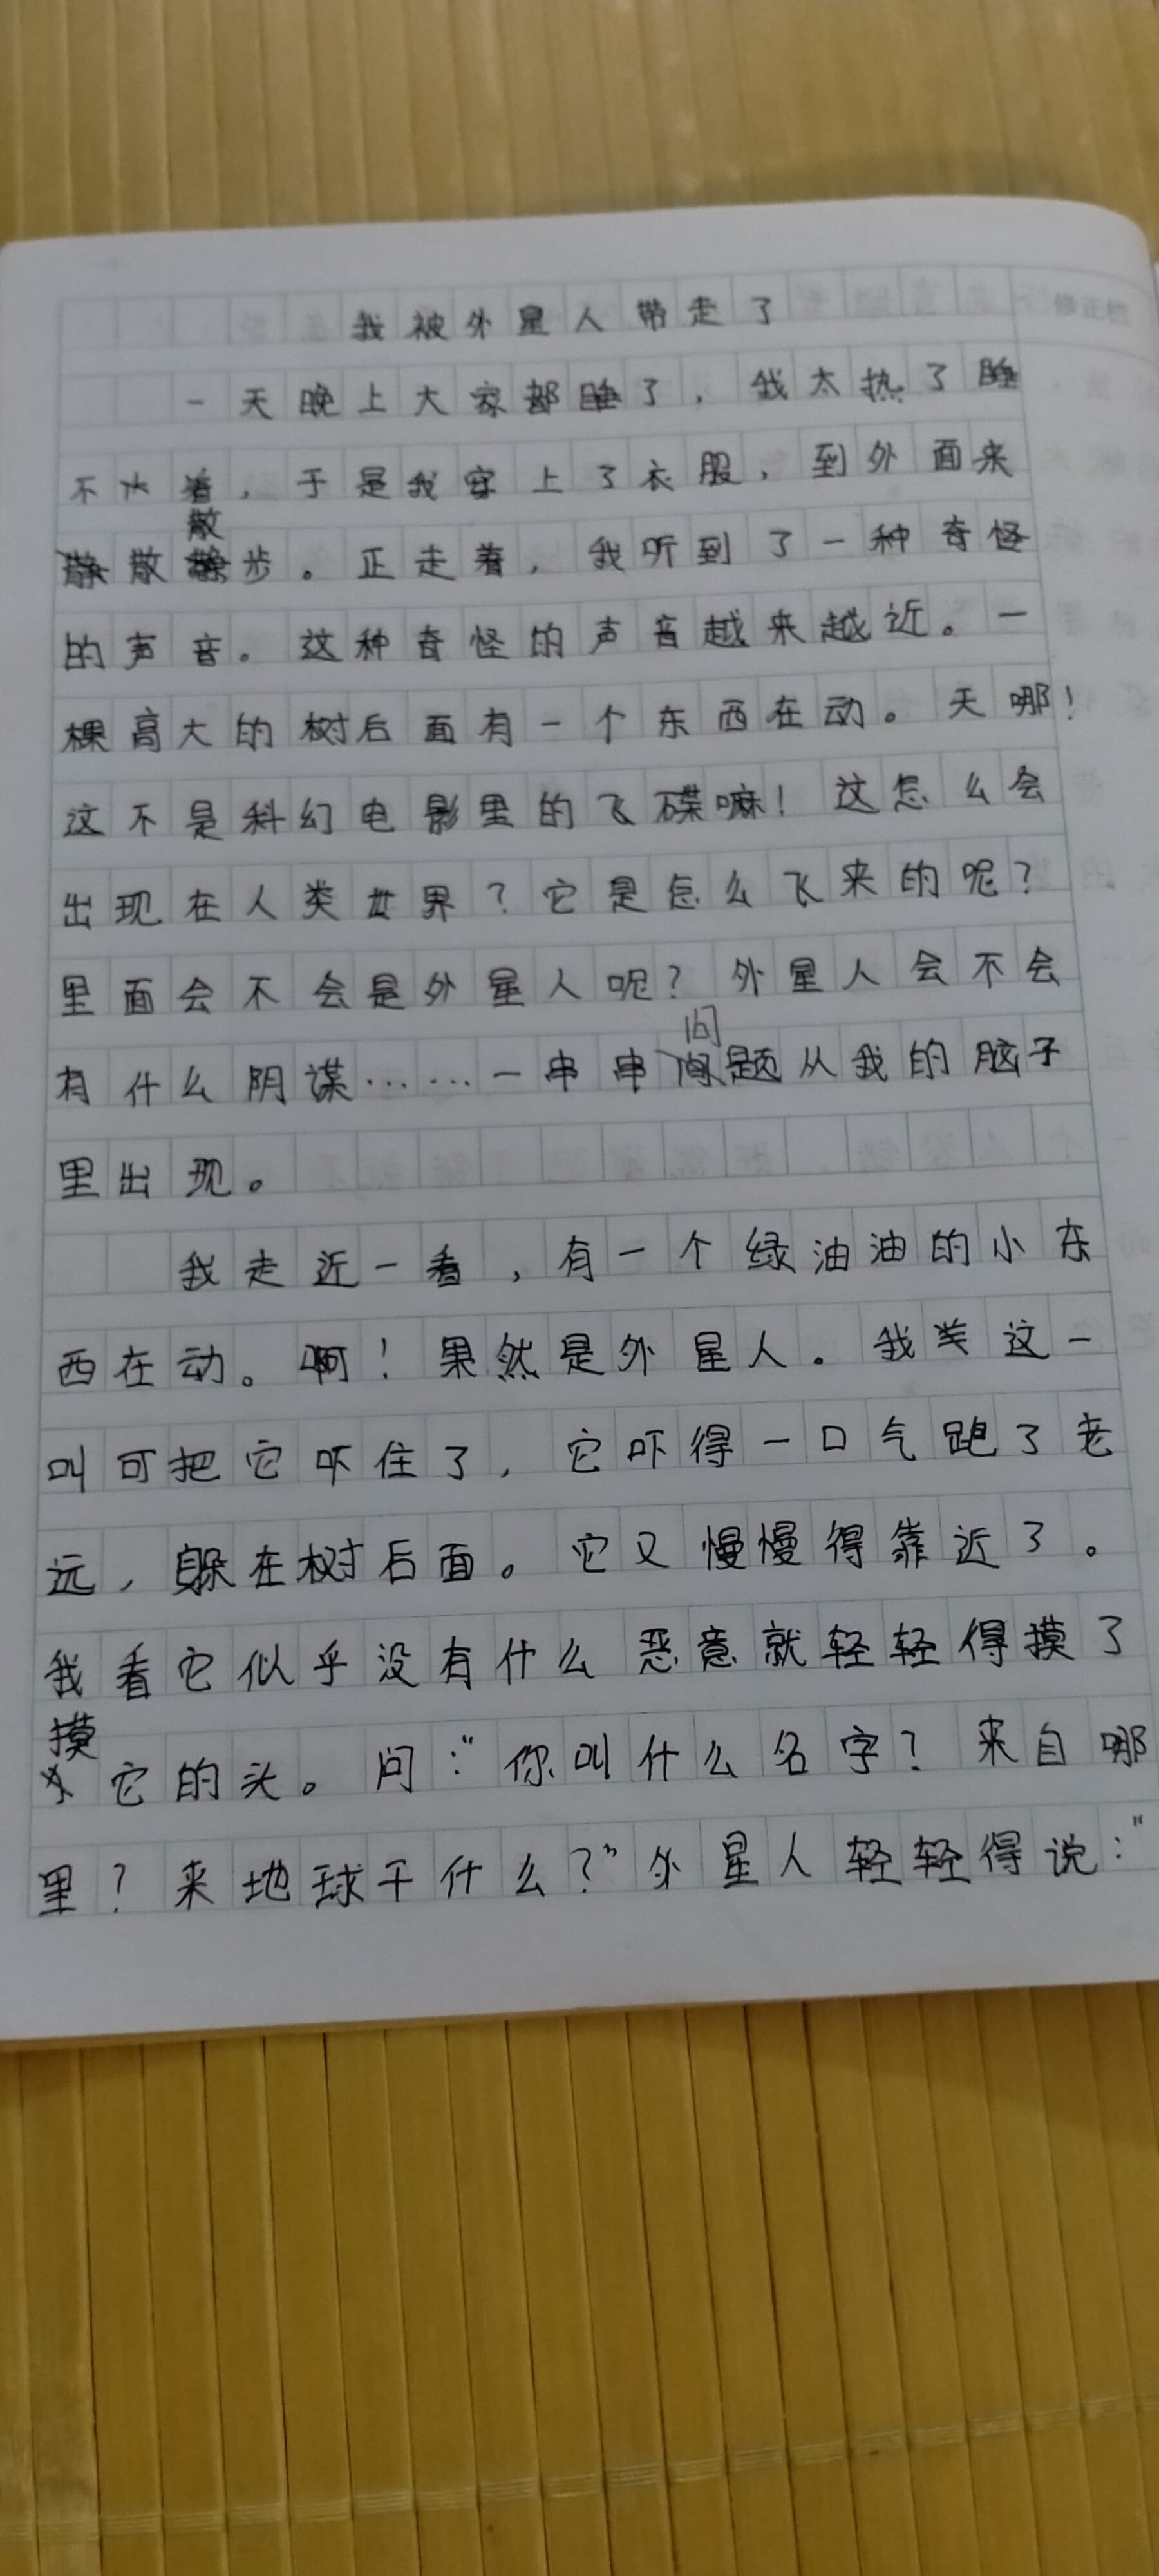 我被外星人带走了
一天晚上大家都睡了，我太热了睡
不着，于是我穿上了衣服，到外面来
散散步。正走着，我听到了一种奇怪
的声音。这种奇怪的声音越来越近。一
棵高大的树后面有一个东西在动。天哪！
这不是科幻电影里的飞碟嘛！这怎么会
出现在人类世界？它是怎么飞来的呢？
里面会不会是外星人呢？外星人会不会
有什么阴谋……一串串问题从我的脑子
里出现。
我走近一看，有一个绿油油的小东
西在动。啊！果然是外星人。我这一
叫可把它吓住了，它吓得一口气跑了老
远，躲在树后面。它又慢慢得靠近了。
我看它似乎没有什么恶意就轻轻得摸了
摸它的头。问：“你叫什么名字？来自哪
里？来地球干什么？”外星人轻轻得说：“